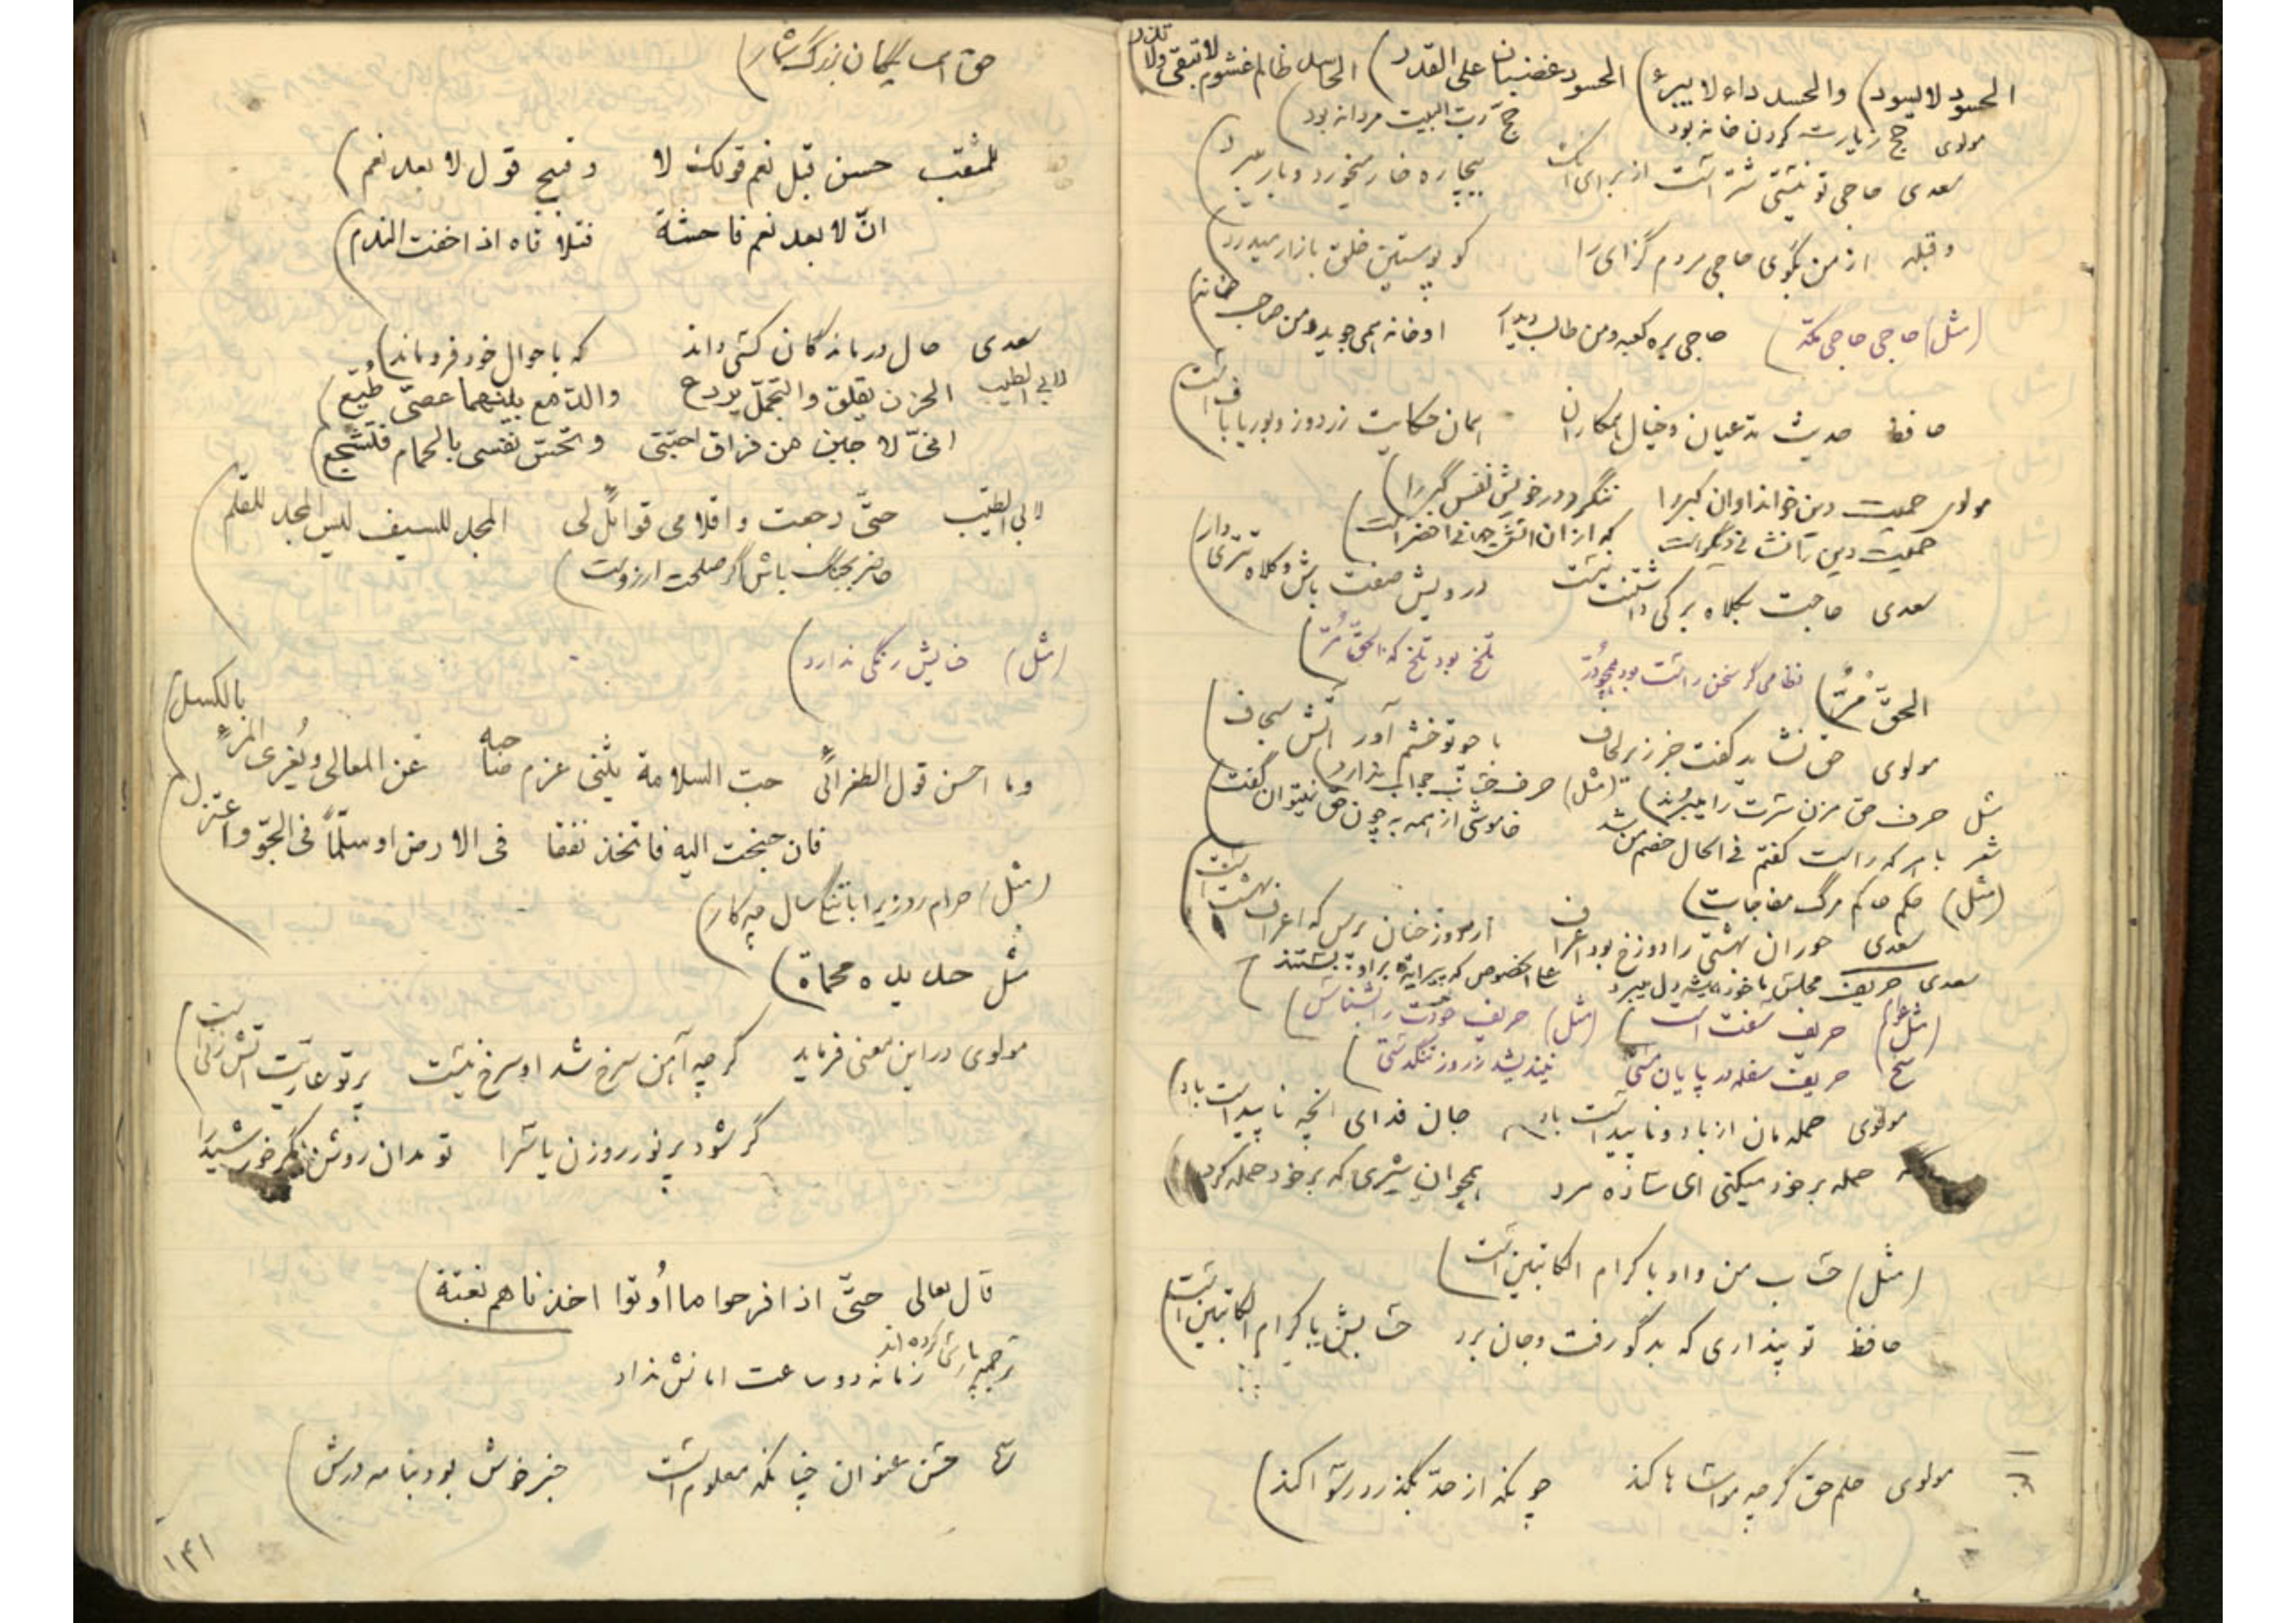 الحسود لا یسود) والحسد داء لا یبرء) الحسود غضبان علی القدر) الحاسد ظالم غشوم لا تبقی ولا تذر
مولوی حج زیارت کردن خانه بود حج رب البیت مردانه بود)
سعدی حاجی تو نیستی شتر است از برای آنک بیچاره خار میخورد و بار میبرد)
وقبله از من بگوی حاجی مردم گزای را کو پوستین خلق بازار میدرد)
(مثل) حاجی حاجی مکه) حاجی بره کعبه و من طالب دیدار او خانه همی جوید و من صاحب خانه)
حافظ حدیث مدعیان و خیال همکاران همان حکایت زردوز و بوریا باف است)
مولوی حمیت دین خواند او آن کبر را ننگرد در خویش نفس گبر را)
حمیت دین را نشانی دیگر است که از آن آتش جهانی اخضر است)
سعدی حاجت بکلاه برکی داشتنت نیست درویش صفت باش و کلاه تتری دار)
الحق مر) نظامی گر سخن راست بود همچو در تلخ بود تلخ که الحق مر)
مولوی حق نشاید گفت جز زیر لحاف با چو تو خشم آور آتش سجاف)
مثل حرف حق مزن سرت را میبرند) (مثل) حرف حساب جواب ندارد)
شعر با هر که راست گفتم فی الحال خصم من شد خاموشی از همه به چون حق نمیتوان گفت)
(مثل) حکم حاکم مرگ مفاجات)
سعدی حوران بهشتی را دوزخ بود اعراف از دوزخیان پرس که اعراف بهشت است)
سعدی حریف مجلس ما خود همیشه دل میبرد علی الخصوص که پیرایه براو بستند)
(مثل عوام) حریف سفت است) (مثل) حریف خودت را بشناس)
شیخ حریف سفله در پایان مستی نیندیشد ز روز تنگدستی)
مولوی حمله مان از باد و ناپیداست باد جان فدای آنچه ناپیداست باد)
حمله بر خود میکنی ای ساده مرد همچو آن شیری که بر خود حمله کرد)
(مثل) حساب من و او با کرام الکاتبین است)
حافظ تو پنداری که بدگو رفت و جان برد حسابش با کرام الکاتبین است)
مولوی حلم حق گرچه مواساها کند چونکه از حد بگذرد رسوا کند)
حق همسایگان بزرگ شمار)
للمثقب حسن قبل نعم قولک لا وقبیح قول لا بعد نعم)
ان لا بعد نعم فاحشة فتلافاه اذا خفت الندم)
سعدی حال درماندگان کسی داند که باحوال خود فروماند)
لابی الطیب الحزن یقلق والتجمل یردع والدمع بینهما عصی طیع)
انی لاجبن من فراق احبتی وتحس نفسی بالحمام فتشجع)
لابی الطیب حتی رجعت واقلامی قوائل لی المجد للسیف لیس المجد للقلم)
حاضر بجنگ باش اگر صلحت آرزوست)
(مثل) حنایش رنگی ندارد)
وما احسن قول الطغرائی حب السلامة یثنی عزم صاحبه عن المعالی ویغری المرء بالکسل)
فان جنحت الیه فاتخذ نفقا فی الارض او سلما فی الجو واعتزل)
(مثل) حرام روزی را با تنگ سال چه کار)
مثل حدیده محماة)
مولوی در این معنی فرماید گرچه آهن سرخ شد او سرخ نیست پرتو عاریت آتش زنی است)
گر شود پر نور روزن یا سرا تو مدان روشن مگر خورشید را
قال تعالی حتی اذا فرحوا بما اوتوا اخذناهم بغتة)
ترجمه پارسی کرده اند زمانه دو ساعت امانش نداد
حسن عنوان چنانکه معلوم است خبر خوش بود بنامه درش)
۱۴۱